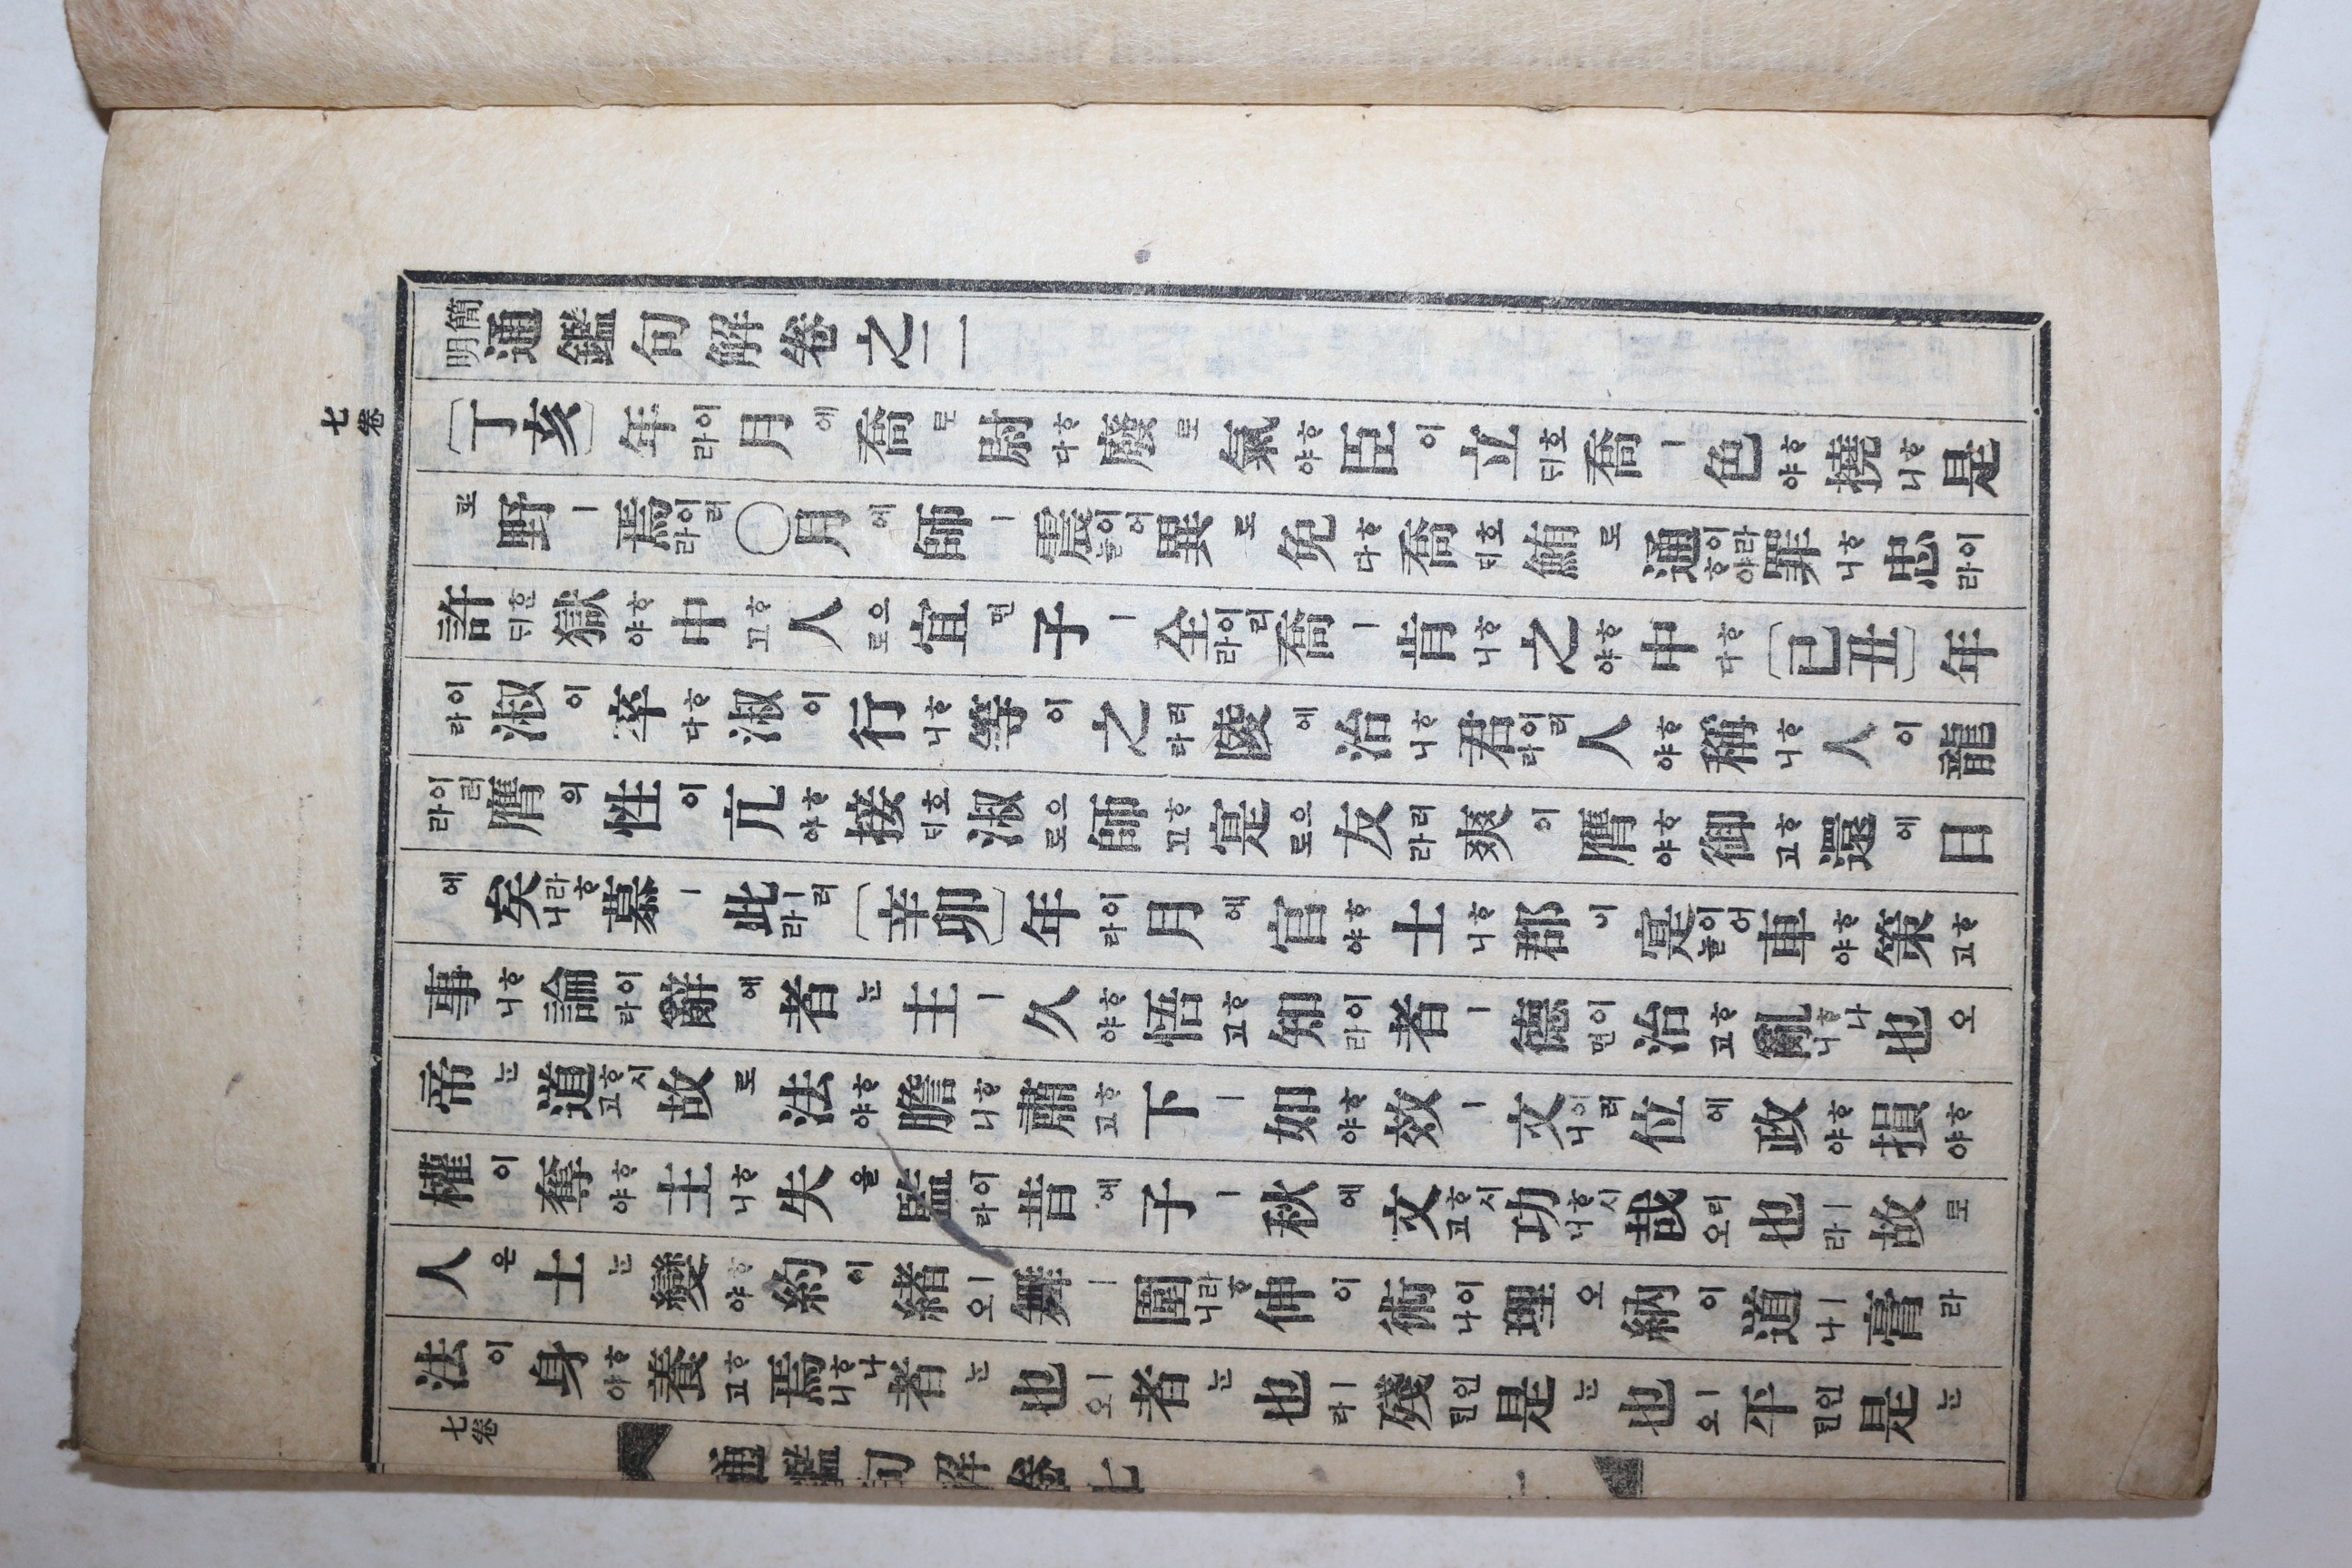 七卷
簡明通鑑句解卷之二
〔丁亥〕年이라月에喬로尉ᄒᆞ다廢로氣ᄒᆞ야臣이立호ᄃᆡ喬ㅣ色ᄒᆞ야撓ᄒᆞ니是
로野ㅣ焉이러라○月에師ㅣ震이어늘異로免ᄒᆞ다喬호ᄃᆡ鮪로通이라ᄒᆞ야罪ᄒᆞ니忠이라
許ᄒᆞᆫᄃᆡ獄ᄒᆞ야中ᄒᆞ고人으로宜면子ㅣ全이리라喬ㅣ肯ᄒᆞ니之ᄒᆞ야中ᄒᆞ다〔己丑〕年
이라淑이卒ᄒᆞ다淑이行ᄒᆞ니等이之러라陵에治ᄒᆞ니君이러라人ᄒᆞ야稱ᄒᆞ니人이龍
이러라膺의性이亢ᄒᆞ야接호ᄃᆡ淑으로師ᄒᆞ고寔으로友러라爽이膺ᄒᆞ야御ᄒᆞ고還에日
에矣라ᄒᆞ니慕ㅣ此ㅣ러라〔辛卯〕年이라月에官ᄒᆞ야士ᄒᆞ니郡이寔이어늘車ᄒᆞ야策ᄒᆞ고
事ᄒᆞ니論이라辭에者ᄂᆞᆫ主ㅣ久ᄒᆞ야悟ᄒᆞ고知이라者ㅣ德이면治ᄒᆞ고亂ᄒᆞ나니也오
帝ᄂᆞᆫ道ᄒᆞ시고故로法ᄒᆞ야膽ᄒᆞ니肅ᄒᆞ고下ㅣ如ᄒᆞ야效ㅣ文이러니位에政ᄒᆞ야損ᄒᆞ야
權이奪ᄒᆞ야主ᄒᆞ니失을監이라昔에子ㅣ秋에文ᄒᆞ시고功ᄒᆞ시니哉리오也ㅣ라故로
人은士ᄂᆞᆫ變ᄒᆞ야約이緖ㅣ오舞ㅣ圍라ᄒᆞ니伸이術이나理오納이道ㅣ나膏라
法이身ᄒᆞ야養ᄒᆞ고焉ᄒᆞ나니者ᄂᆞᆫ也ㅣ오者ᄂᆞᆫ也ㅣ라殘인ᄃᆡᆫ是ᄂᆞᆫ也ㅣ오平인ᄃᆡᆫ是ᄂᆞᆫ
七卷
通鑑句解卷七 一